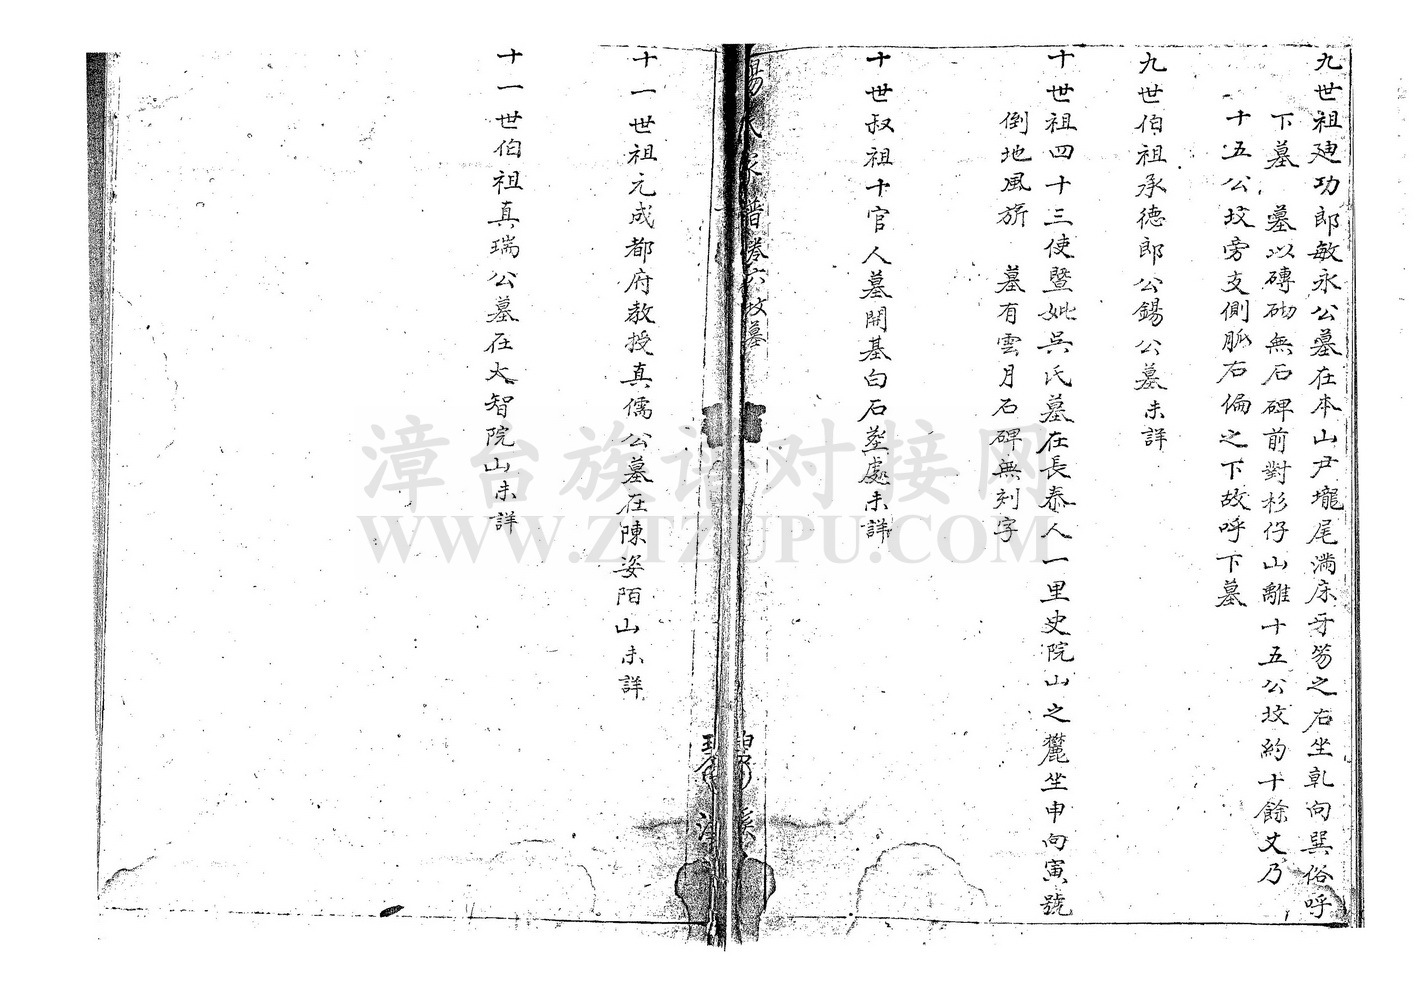 九世祖廸功郎敏永公墓在本山尹壠尾滿床牙笏之右坐乹向巽俗呼
下墓　墓以磚砌無石碑前對杉仔山離十五公坟約十餘丈乃
十五公坟旁支側脈右偏之下故呼下墓
九世伯祖承德郎公錫公墓未詳
十世祖四十三使暨妣吳氏墓在長泰人一里史院山之麓坐申向寅號
倒地風旂　墓有雲月石碑無刻字
十世叔祖十官人墓開基白石塟處未詳
楊氏家譜卷六坟墓
十一世祖元成都府教授真儒公墓在陳姿陌山未詳
十一世伯祖真瑞公墓在大智院山未詳
漳台族谱对接网
WWW.ZTZUPU.COM